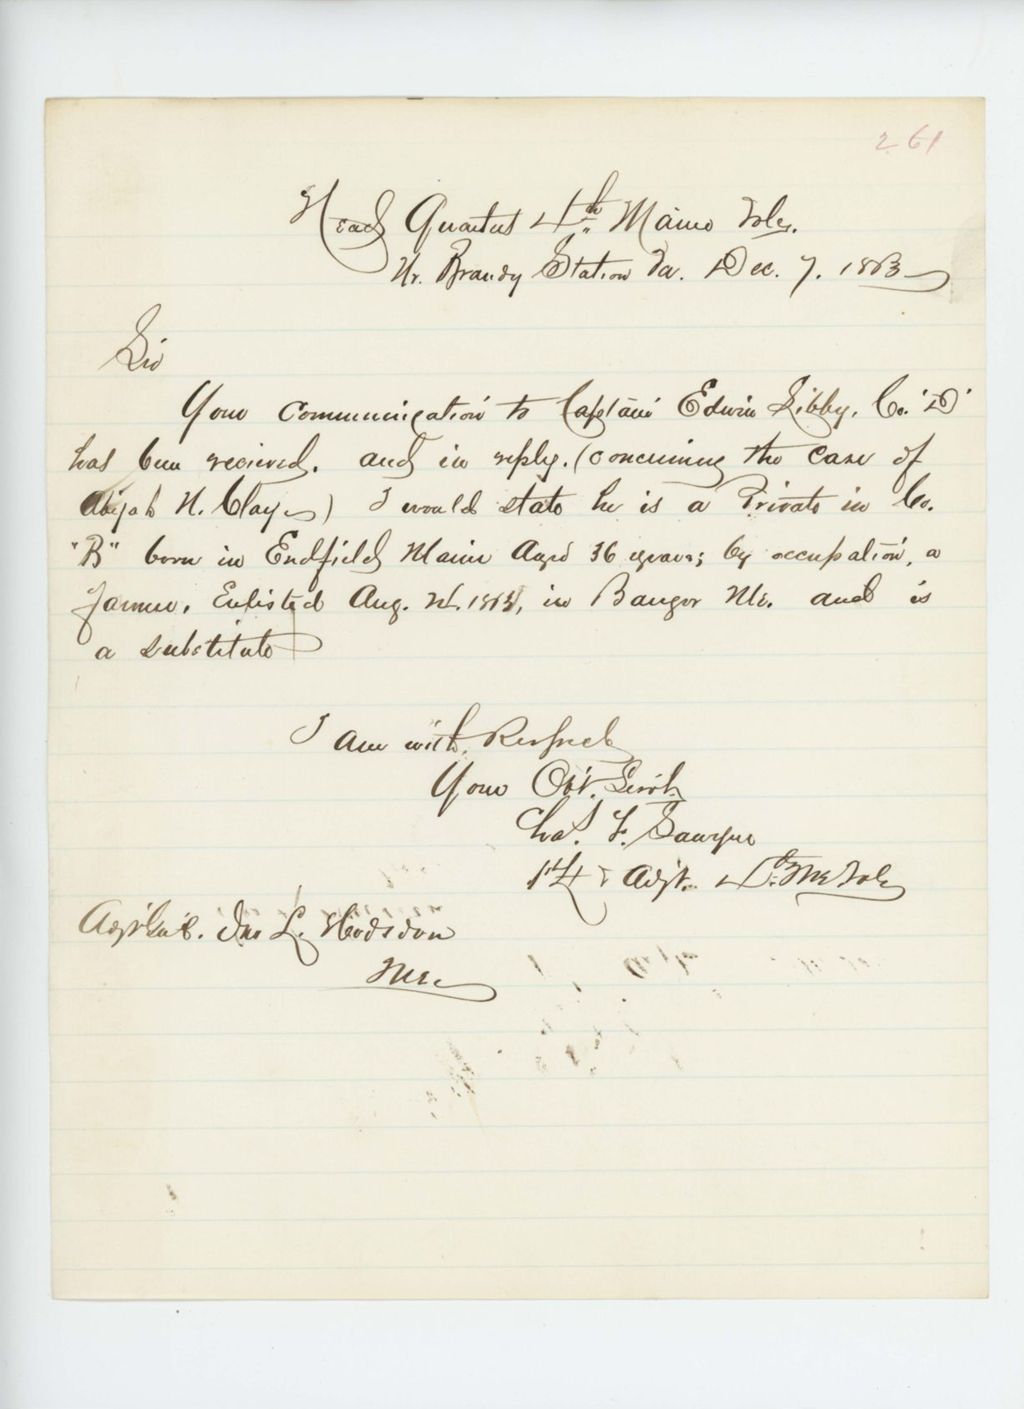 261
Head Quarters 4th Maine Vols.
Nr. Brandy Station Va. Dec. 7. 1863
Sir
Your communication to Captain Edwin Libby, Co. "D"
has been recieved. and in reply. (concerning the case of
Abijah N. Clay) I would state he is a Private in Co.
"B" born in Endfield Maine Aged 36 years; by occupation, a
farmer. Enlisted Aug. 1863, in Bangor Me. and is
a substitute
I am with Respect
Your Obt. Servt.
Chas. F. Sawyer
1st Lt & Adjt. 4th Me Vols
Adjt Genl. Jno L. Hodsdon
Me.